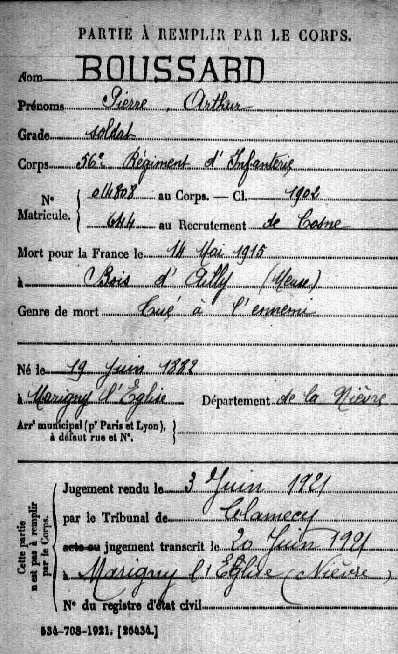 PARTIE À REMPLIR PAR LE CORPS.
Nom BOUSSARD
Prénoms Pierre, Arthur
Grade soldat
Corps 56e Régiment d'Infanterie
N° Matricule. { 04808 au Corps. — Cl. 1902
644 au Recrutement de Cosne
Mort pour la France le 14 Mai 1915
à Bois d'Ailly (Meuse)
Genre de mort Tué à l'ennemi
Né le 19 Juin 1882
à Marigny l'Eglise Département de la Nièvre
Arrt municipal (pr Paris et Lyon), à défaut rue et N°. }
Cette partie n'est pas à remplir par le Corps.
Jugement rendu le 3 Juin 1921
par le Tribunal de Clamecy
acte ou jugement transcrit le 20 Juin 1921
à Marigny l'Eglise (Nièvre)
N° du registre d'état civil
534-708-1921. [26434.]